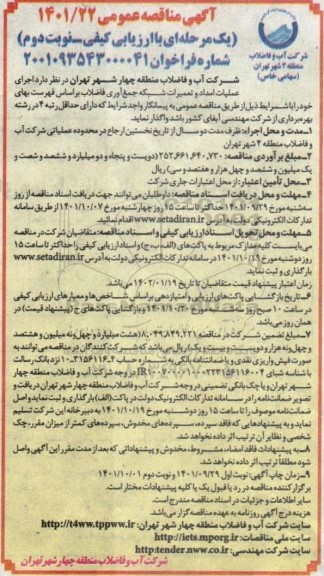 آگهی مناقصه عمومی ۱۴۰۱/۲۲
(یک مرحله‌ای با ارزیابی کیفی_نوبت دوم)
شماره فراخوان ۲۰۰۱۰۹۳۵۴۳۰۰۰۰۴۱
شرکت آب و فاضلاب
منطقه ۴ شهر تهران
(سهامی خاص)
شرکت آب و فاضلاب منطقه چهار شهر تهران در نظر دارد اجرای
عملیات امداد و تعمیرات شبکه جمع‌آوری فاضلاب براساس فهرست بهای
خود را با شرایط ذیل از طریق مناقصه عمومی به پیمانکار واجد شرایط که دارای حداقل رتبه ۴ در رشته
بهره‌برداری از شرکت مهندسی آبفای کشور باشد واگذار نماید.
۱_مدت و محل اجرا: ظرف مدت دو سال از تاریخ نخستین ارجاع در محدوده عملیاتی شرکت آب و
فاضلاب منطقه ۴ شهر تهران
۲_مبلغ برآوردی مناقصه: ۲۵۲,۶۶۱,۶۴۰,۷۳۰ (دویست و پنجاه و دو میلیارد و ششصد و شصت و
یک میلیون و ششصد و چهل هزار و هفتصد و سی) ریال
۳_محل تأمین اعتبار: از محل اعتبارات جاری شرکت
۴_مهلت و محل دریافت اسناد مناقصه: داوطلبان می‌توانند جهت دریافت اسناد مناقصه از روز
سه‌شنبه مورخ ۱۴۰۱/۰۹/۲۹ حداکثر تا ساعت ۱۵ روز چهارشنبه مورخ ۱۴۰۱/۱۰/۰۷ از طریق سامانه
تدارکات الکترونیکی دولت به آدرس www.setadiran.ir اقدام نمائید.
۵_مهلت و محل تحویل اسناد ارزیابی کیفی و اسناد مناقصه: متقاضیان شرکت در مناقصه
می‌بایست کلیه مدارک مربوط به پاکت‌های (الف، ب، ج) و اسناد ارزیابی کیفی را حداکثر تا ساعت ۱۵
روز دوشنبه مورخ ۱۴۰۱/۱۰/۱۹ در سامانه تدارکات الکترونیکی دولت به آدرس www.setadiran.ir
بارگذاری و ثبت نماید.
زمان اعتبار پیشنهاد قیمت متقاضیان تا تاریخ ۱۴۰۲/۰۱/۱۹ می‌باشد.
۶_تاریخ بازگشایی پاکت‌های ارزیابی و امتیازدهی براساس شاخص‌ها و معیارهای ارزیابی کیفی
در ساعت ۱۰ صبح روز سه‌شنبه مورخ ۱۴۰۱/۱۰/۲۰ و بازگشایی پاکت‌های ج (پیشنهاد قیمت) در
همان روز می‌باشد.
۷_مبلغ تضمین شرکت در مناقصه ۸,۰۴۹,۸۴۹,۲۲۱ (هشت میلیارد و چهل و نه میلیون و هشتصد
و چهل و نه هزار و دویست و بیست و یک) ریال می‌باشد که شرکت‌کنندگان در مناقصه می‌توانند به
صورت فیش واریزی نقدی و یا ضمانتنامه بانکی به شماره حساب
در وجه شرکت آب و فاضلاب منطقه چهار
شهر تهران و یا چک بانکی تضمینی در وجه شرکت آب و فاضلاب منطقه چهار شهر تهران دریافت و
تصویر ضمانت‌نامه را در سامانه تدارکات الکترونیک دولت در پاکت (الف) بارگذاری و ثبت نماید و اصل
ضمانت‌نامه موصوف را تا ساعت ۱۵ روز دوشنبه مورخ ۱۴۰۱/۱۰/۱۹ به دبیرخانه این شرکت تسلیم
نماید و به پیشنهادهایی که فاقد سپرده، سپرده‌های مخدوش، سپرده‌های کمتر از میزان مقرر، چک
شخصی و نظایر آن ترتیب اثر داده نخواهد شد.
۸_به پیشنهادات فاقد امضاء، مشروط، مخدوش و پیشنهاداتی که بعد از مدت مقرر این آگهی واصل
شود مطلقاً ترتیب اثر داده نخواهد شد.
۹_زمان چاپ آگهی: نوبت اول ۱۴۰۱/۰۹/۲۹ و نوبت دوم ۱۴۰۱/۱۰/۰۱
برگزارکننده مناقصه در رد یا قبول یک یا کلیه پیشنهادات مختار است.
سایر اطلاعات و جزئیات در اسناد مناقصه مندرج است.
هزینه درج آگهی روزنامه به عهده مناقصه‌گزار می‌باشد.
سایت شرکت آب و فاضلاب منطقه چهار شهر تهران: http://t4ww.tpww.ir
سایت ملی مناقصات: http://iets.mporg.ir
سایت شرکت مهندسی: http:tender.nww.co.ir
شرکت آب و فاضلاب منطقه چهار شهر تهران